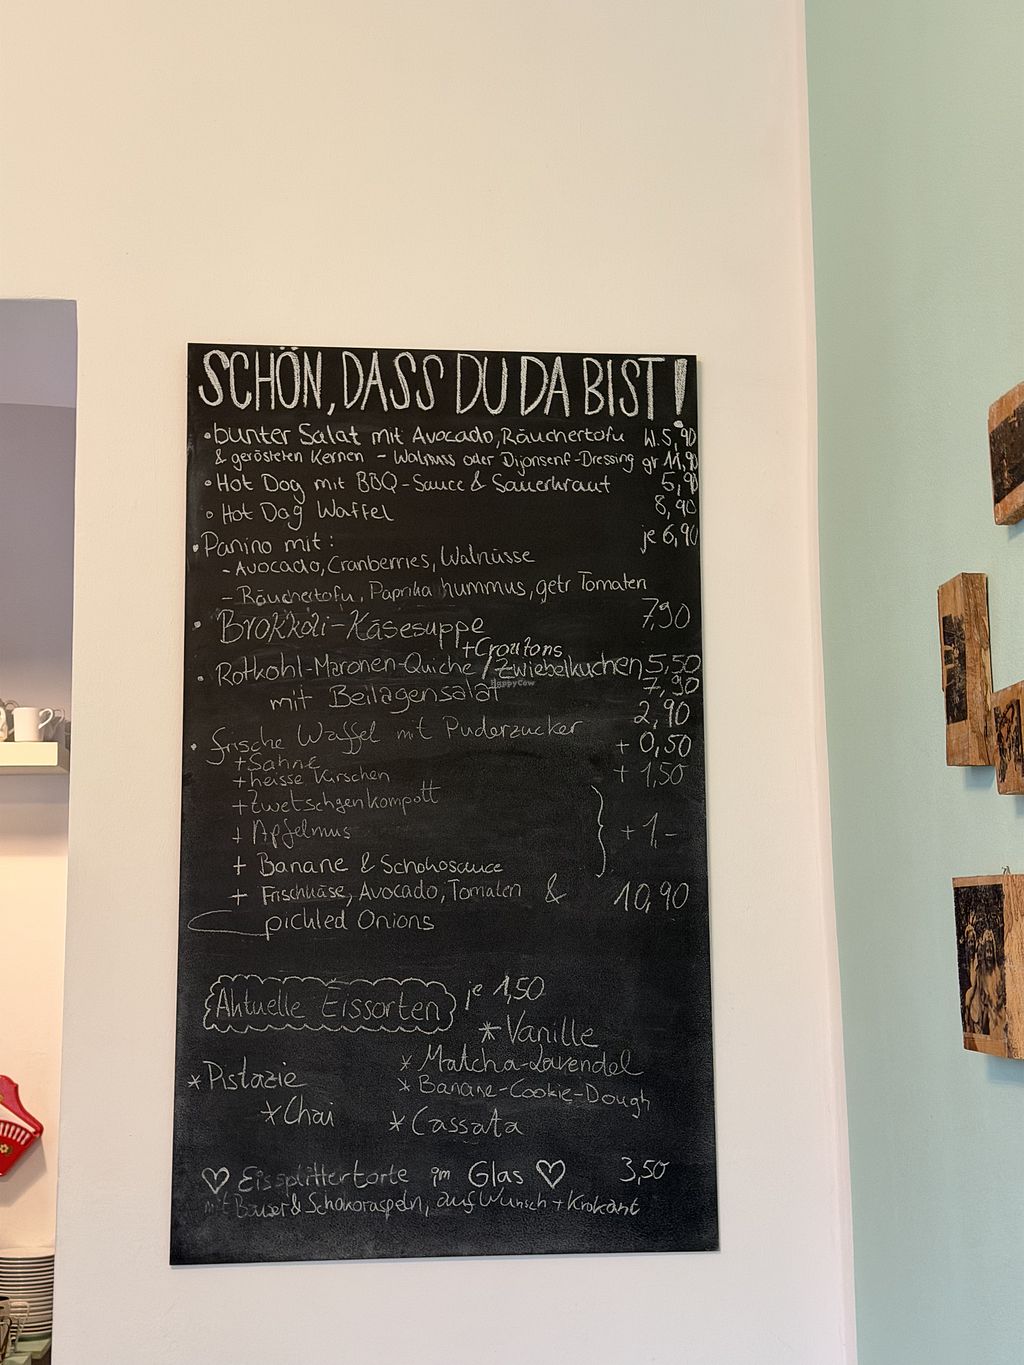 SCHÖN, DASS DU DA BIST!
• bunter Salat mit Avocado, Räuchertofu kl. 5,90
& gerösteten Kernen - Walnuss oder Dijonsenf-Dressing gr 11,90
• Hot Dog mit BBQ-Sauce & Sauerkraut 5,90
• Hot Dog Waffel 8,90
• Panino mit: je 6,90
- Avocado, Cranberries, Walnüsse
- Räuchertofu, Paprika hummus, getr Tomaten
• Brokkoli-Käsesuppe 7,90
+Croutons
• Rotkohl-Maronen-Quiche / Zwiebelkuchen 5,50
mit Beilagensalat 7,90
• frische Waffel mit Puderzucker 2,90
+ Sahne + 0,50
+ heisse Kirschen + 1,50
+ Zwetschgenkompott
+ Apfelmus + 1,-
+ Banane & Schokosauce
+ Frischkäse, Avocado, Tomaten & 10,90
pickled Onions
Aktuelle Eissorten je 1,50
* Vanille
* Matcha-Lavendel
* Pistazie
* Banane-Cookie-Dough
* Chai
* Cassata
♡ Eissplittertorte im Glas ♡ 3,50
mit & Schokoraspeln, auf Wunsch + Krokant
HappyCow